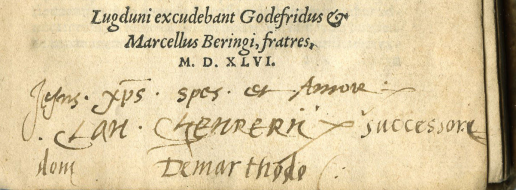 Lugduni excudebant Godefridus &
Marcellus Beringi, fratres,
M. D. XLVI.
Jesus . xp̄s . spes . et Amore
successore
domi Demarthodo